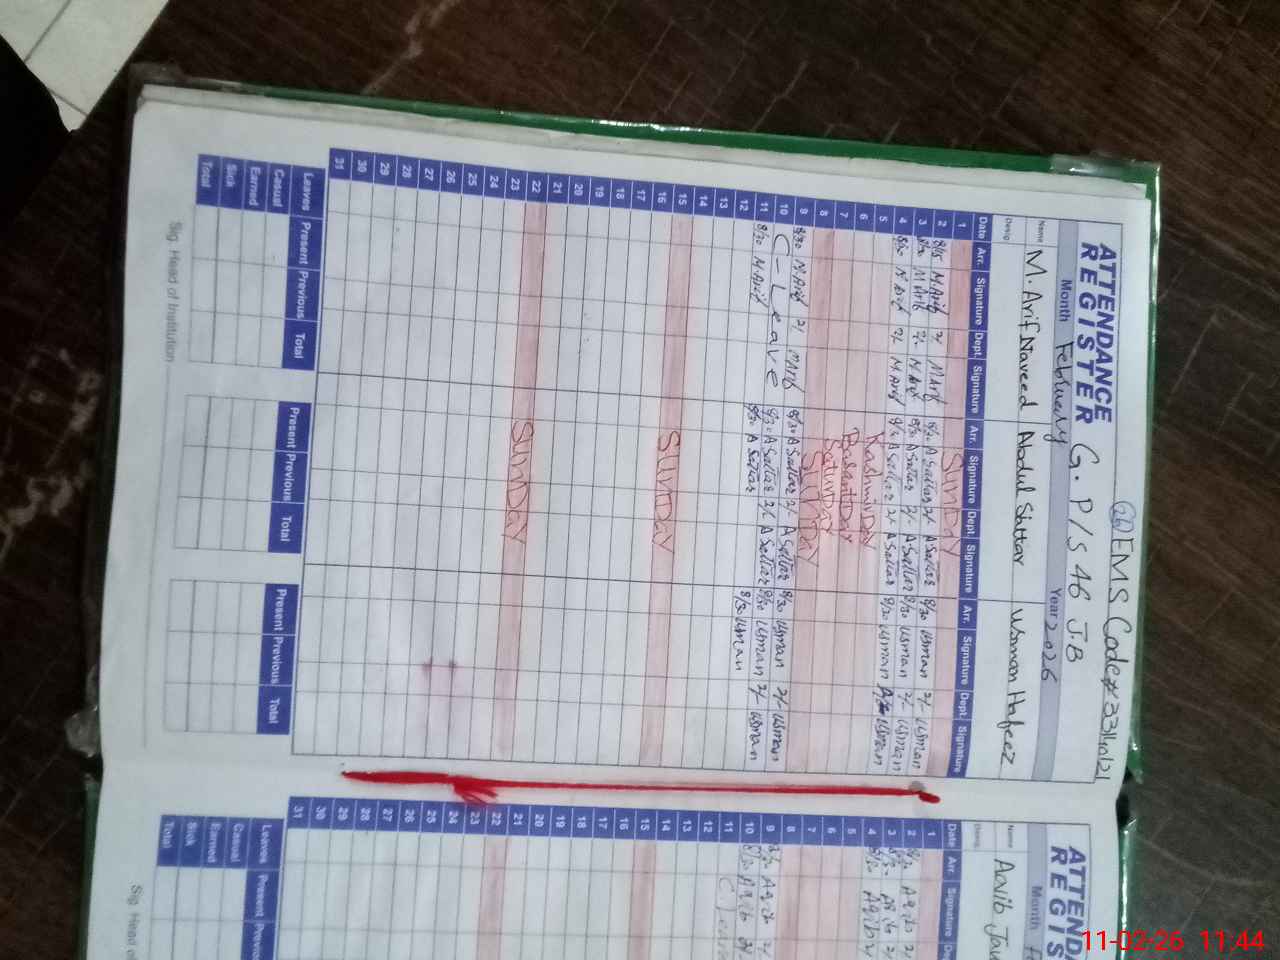 (26) EMS Code# 33110121
ATTENDANCE REGISTER G. P/S 46 J.B
Month February Year 2026
Name M. Arif Naveed Abdul Sattar Usman Hafeez
Desig.
Date Arr. Signature Dept. Signature Arr. Signature Dept. Signature Arr. Signature Dept. Signature
1 SUNDAY
2 8/15 M.Arif 2/- M.Arif 8/30 A Sattar 2/- A Sattar 8/30 Usman 2/- Usman
3 8/30 M.Arif 2/- M.Arif 8/30 A Sattar 2/- A Sattar 8/30 Usman 2/- Usman
4 8/30 M.Arif 2/- M.Arif 8/30 A Sattar 2/- A Sattar 8/30 Usman Usman
5 Kashmir Day
6 Basant Day
7 Saturday
8 SUNDAY
9 8/30 M.Arif 2/- M.Arif 8/30 A Sattar 2/- A Sattar 8/30 Usman 2/- Usman
10 C-Leave 8/30 A Sattar 2/- A Sattar 8/30 Usman 2/- Usman
11 8/30 M.Arif 8/30 A Sattar 8/30 Usman
12
13
14
15 SUNDAY
16
17
18
19
20
21
22 SUNDAY
23
24
25
26
27
28
29
30
31
Leaves Present Previous Total Present Previous Total Present Previous Total
Casual
Earned
Sick
Total
Sig. Head of Institution
ATTENDA
REGIS
Month
Name Aqib
Desig.
Date Arr. Signature
1
2 Aqib
3 Aqib
4 Aqib
5
6
7
8
9 8/30 Aqib 2/-
10 8/30 Aqib 2/-
11
12
13
14
15
16
17
18
19
20
21
22
23
24
25
26
27
28
29
30
31
Leaves Present Previous
Casual
Earned
Sick
Total
Sig. Head of
11-02-26 11:44